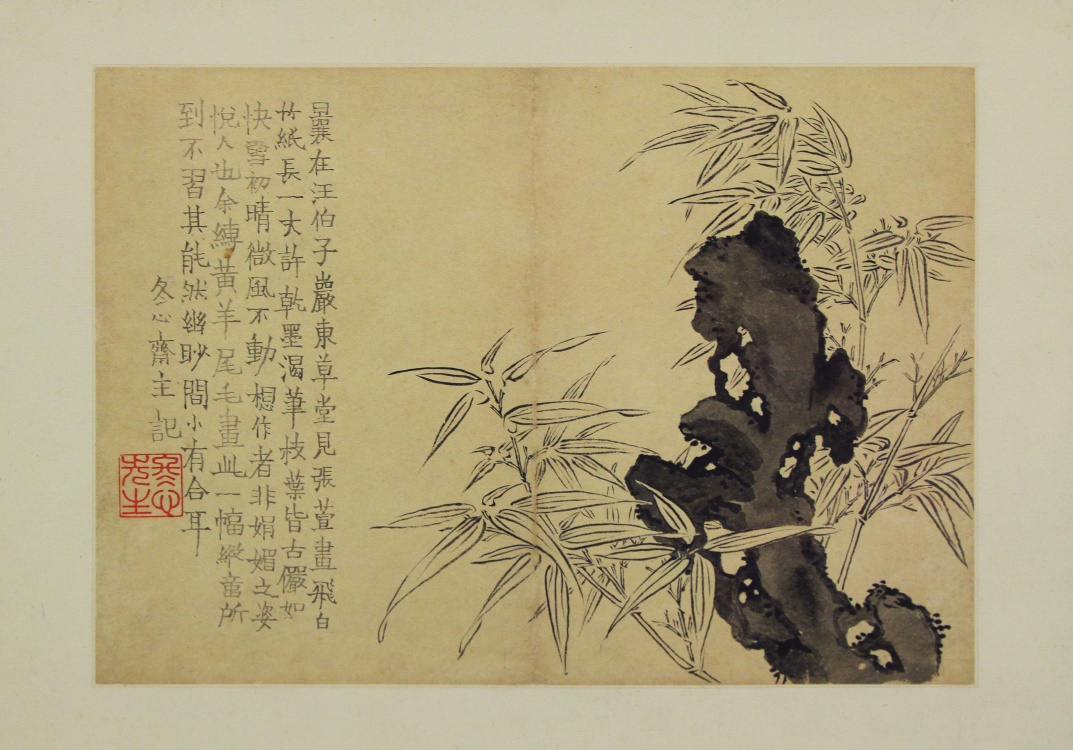 曩在汪伯子巖東草堂見張萱畫飛白
竹紙長一丈許乾墨渴筆枝葉皆古儼如
快雪初晴微風不動想作者非娟媚之姿
悅人也余縛黃羊尾毛畫此一幅縱意所
到不習其能然幽眇間小有合耳
冬心齋主記
冬心先生